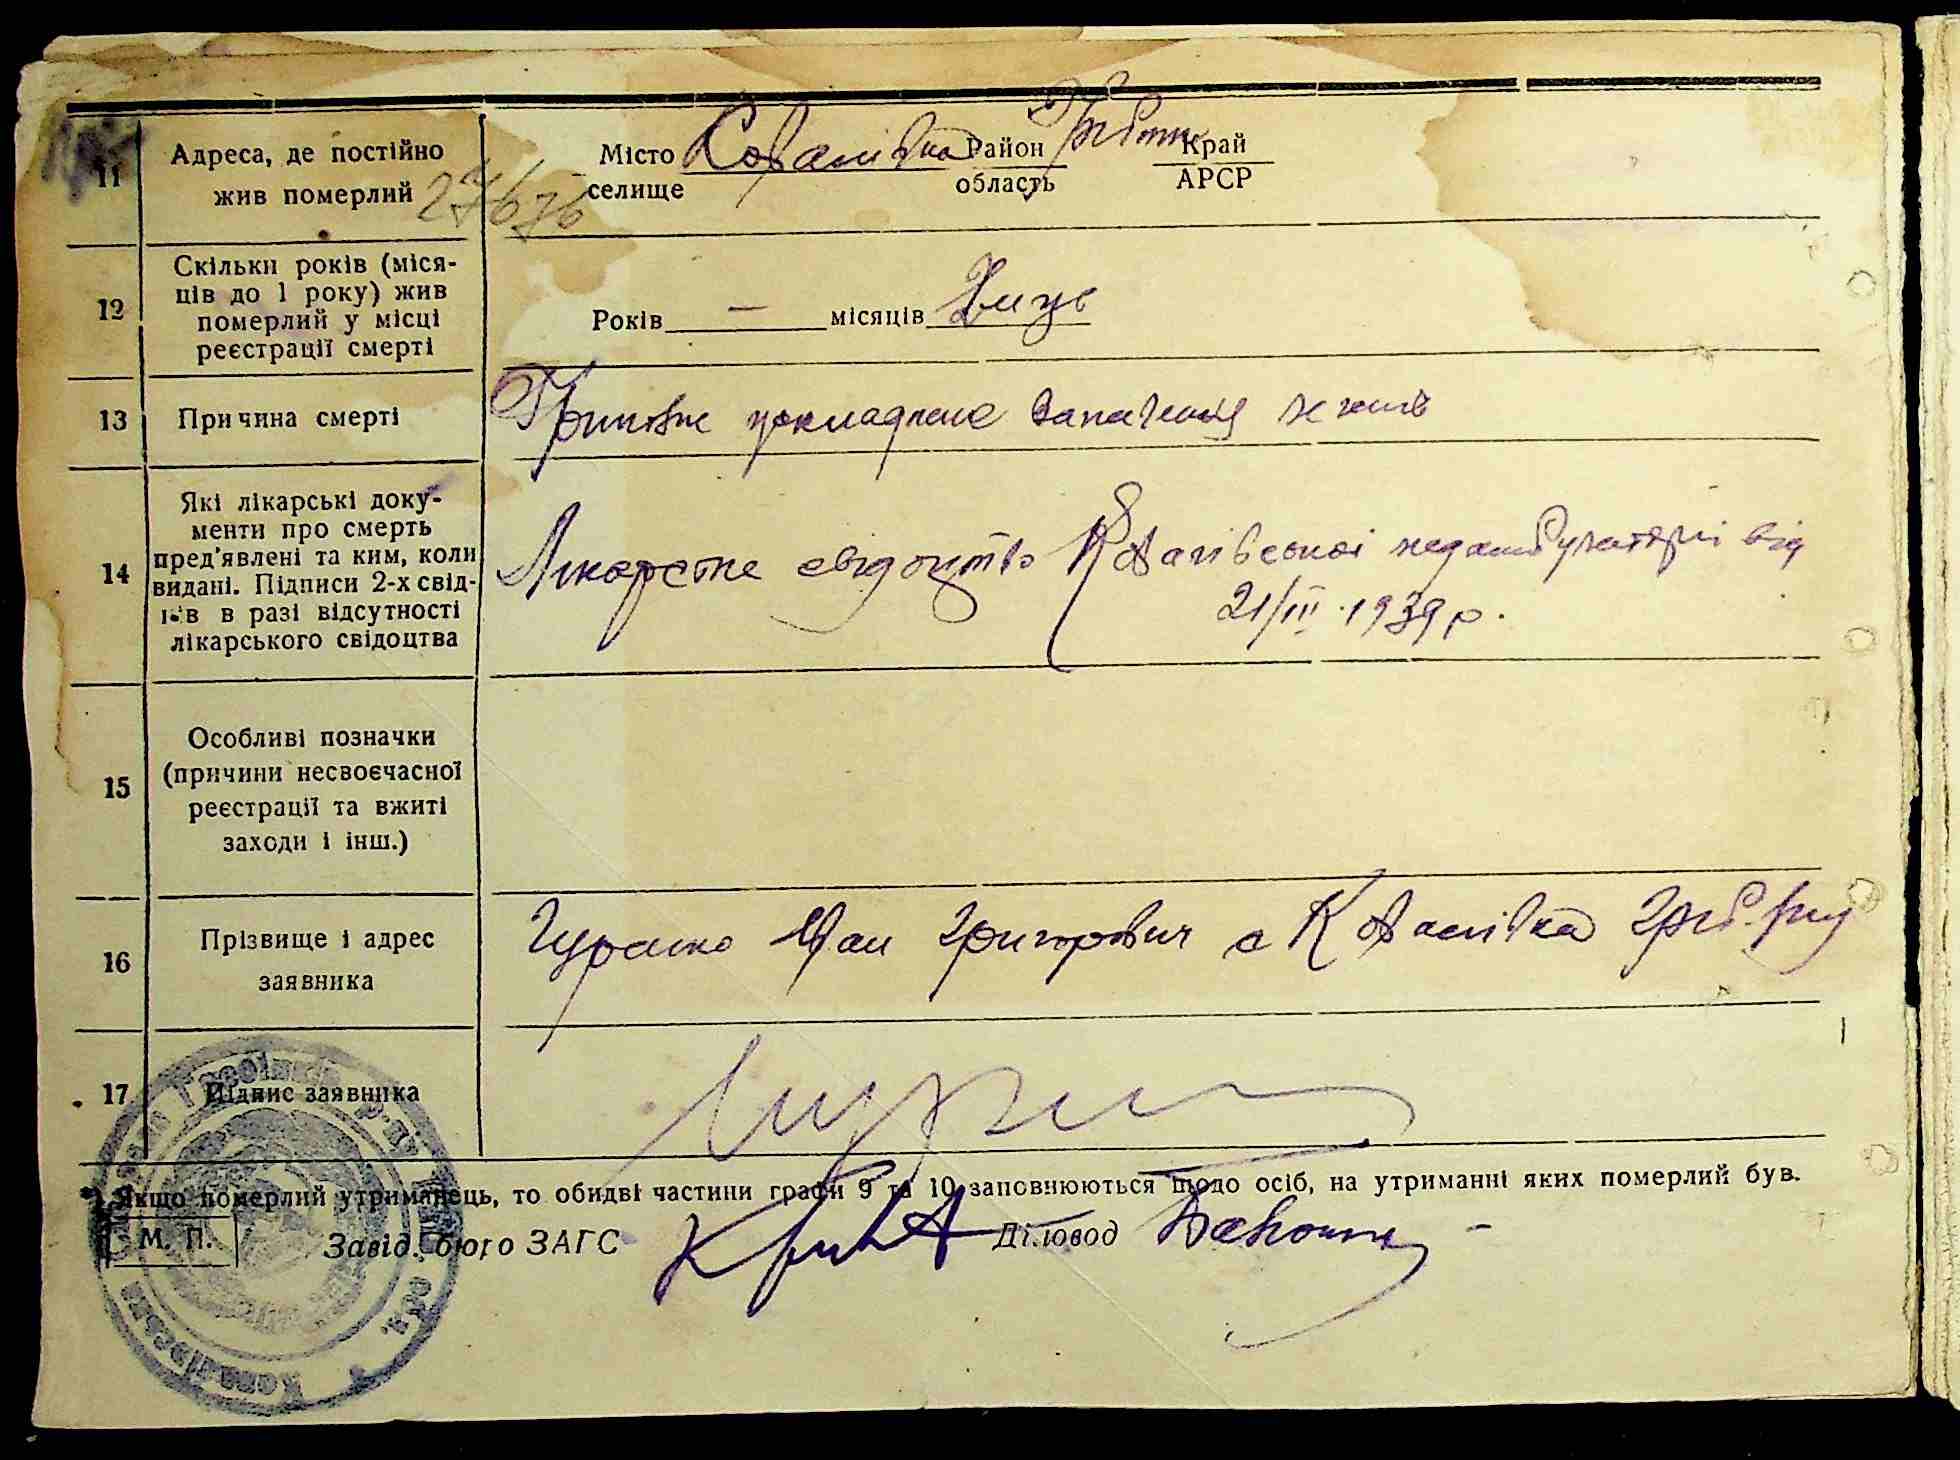 11
Адреса, де постійно
жив померлий
27676
Місто Ковалівка Район Край
селище область АРСР
12
Скільки років (міся-
ців до 1 року) жив
померлий у місці
реєстрації смерті
Років — місяців
13
Причина смерті
Грипозне запалення легенів
14
Які лікарські доку-
менти про смерть
пред'явлені та ким, коли
видані. Підписи 2-х свід-
ків в разі відсутності
лікарського свідоцтва
Лікарське свідоцтво Ковалівської медамбулаторії від
21/III 1939 р.
15
Особливі позначки
(причини несвоєчасної
реєстрації та вжиті
заходи і інш.)
16
Прізвище і адрес
заявника
Іван Григорович с Ковалівка
17
Підпис заявника
*) Якщо померлий утриманець, то обидві частини графи 9 та 10 заповнюються щодо осіб, на утриманні яких померлий був.
М. П.
Завід. бюро ЗАГС
Діловод